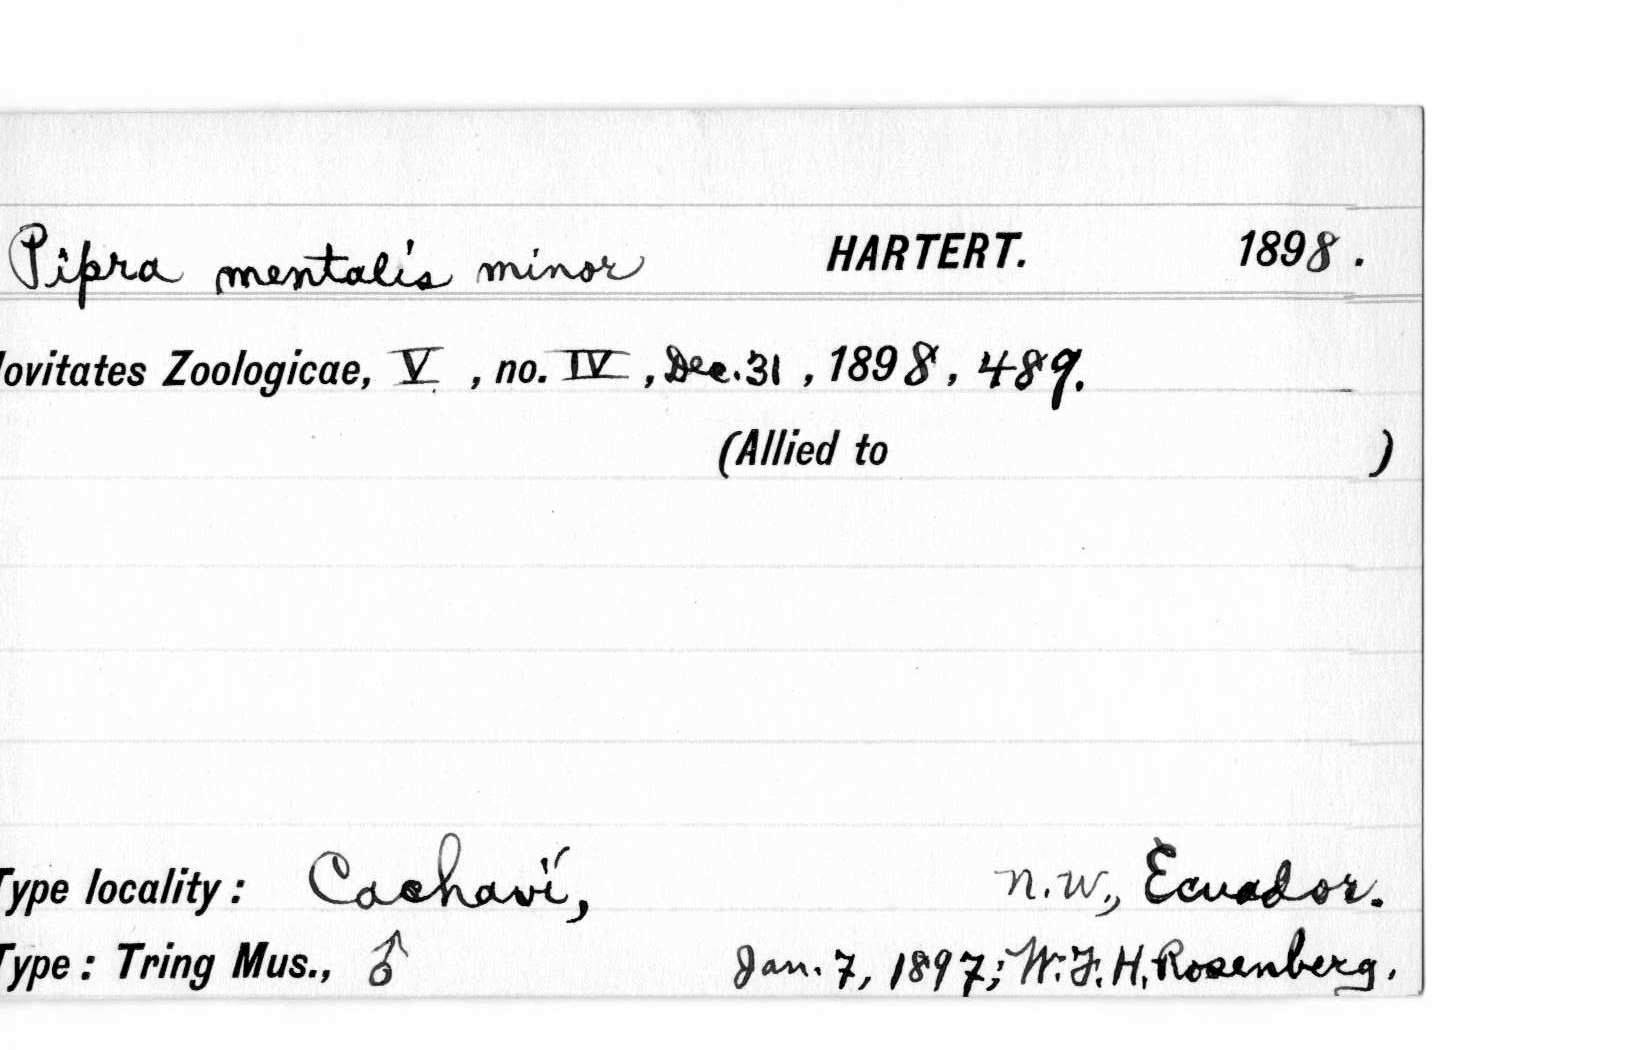 Pipra mentalis minor HARTERT. 1898.
ovitates Zoologicae, V, no. IV, Dec. 31, 1898, 489.
(Allied to )
Type locality: Cachaví, N.W., Ecuador.
Type: Tring Mus., ♂ Jan. 7, 1897; W.F.H. Rosenberg.